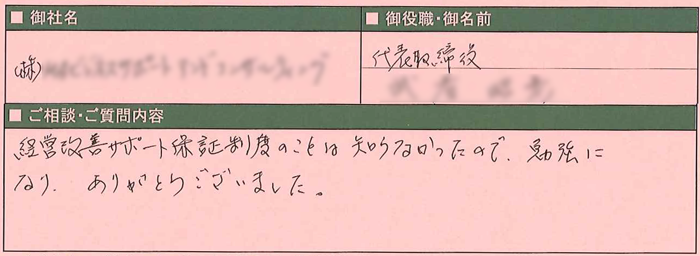 ■ 御社名
■ 御役職・御名前
(株)
代表取締役
■ ご相談・ご質問内容
経営改善サポート保証制度のことは知らなかったので、勉強に
なり、ありがとうございました。